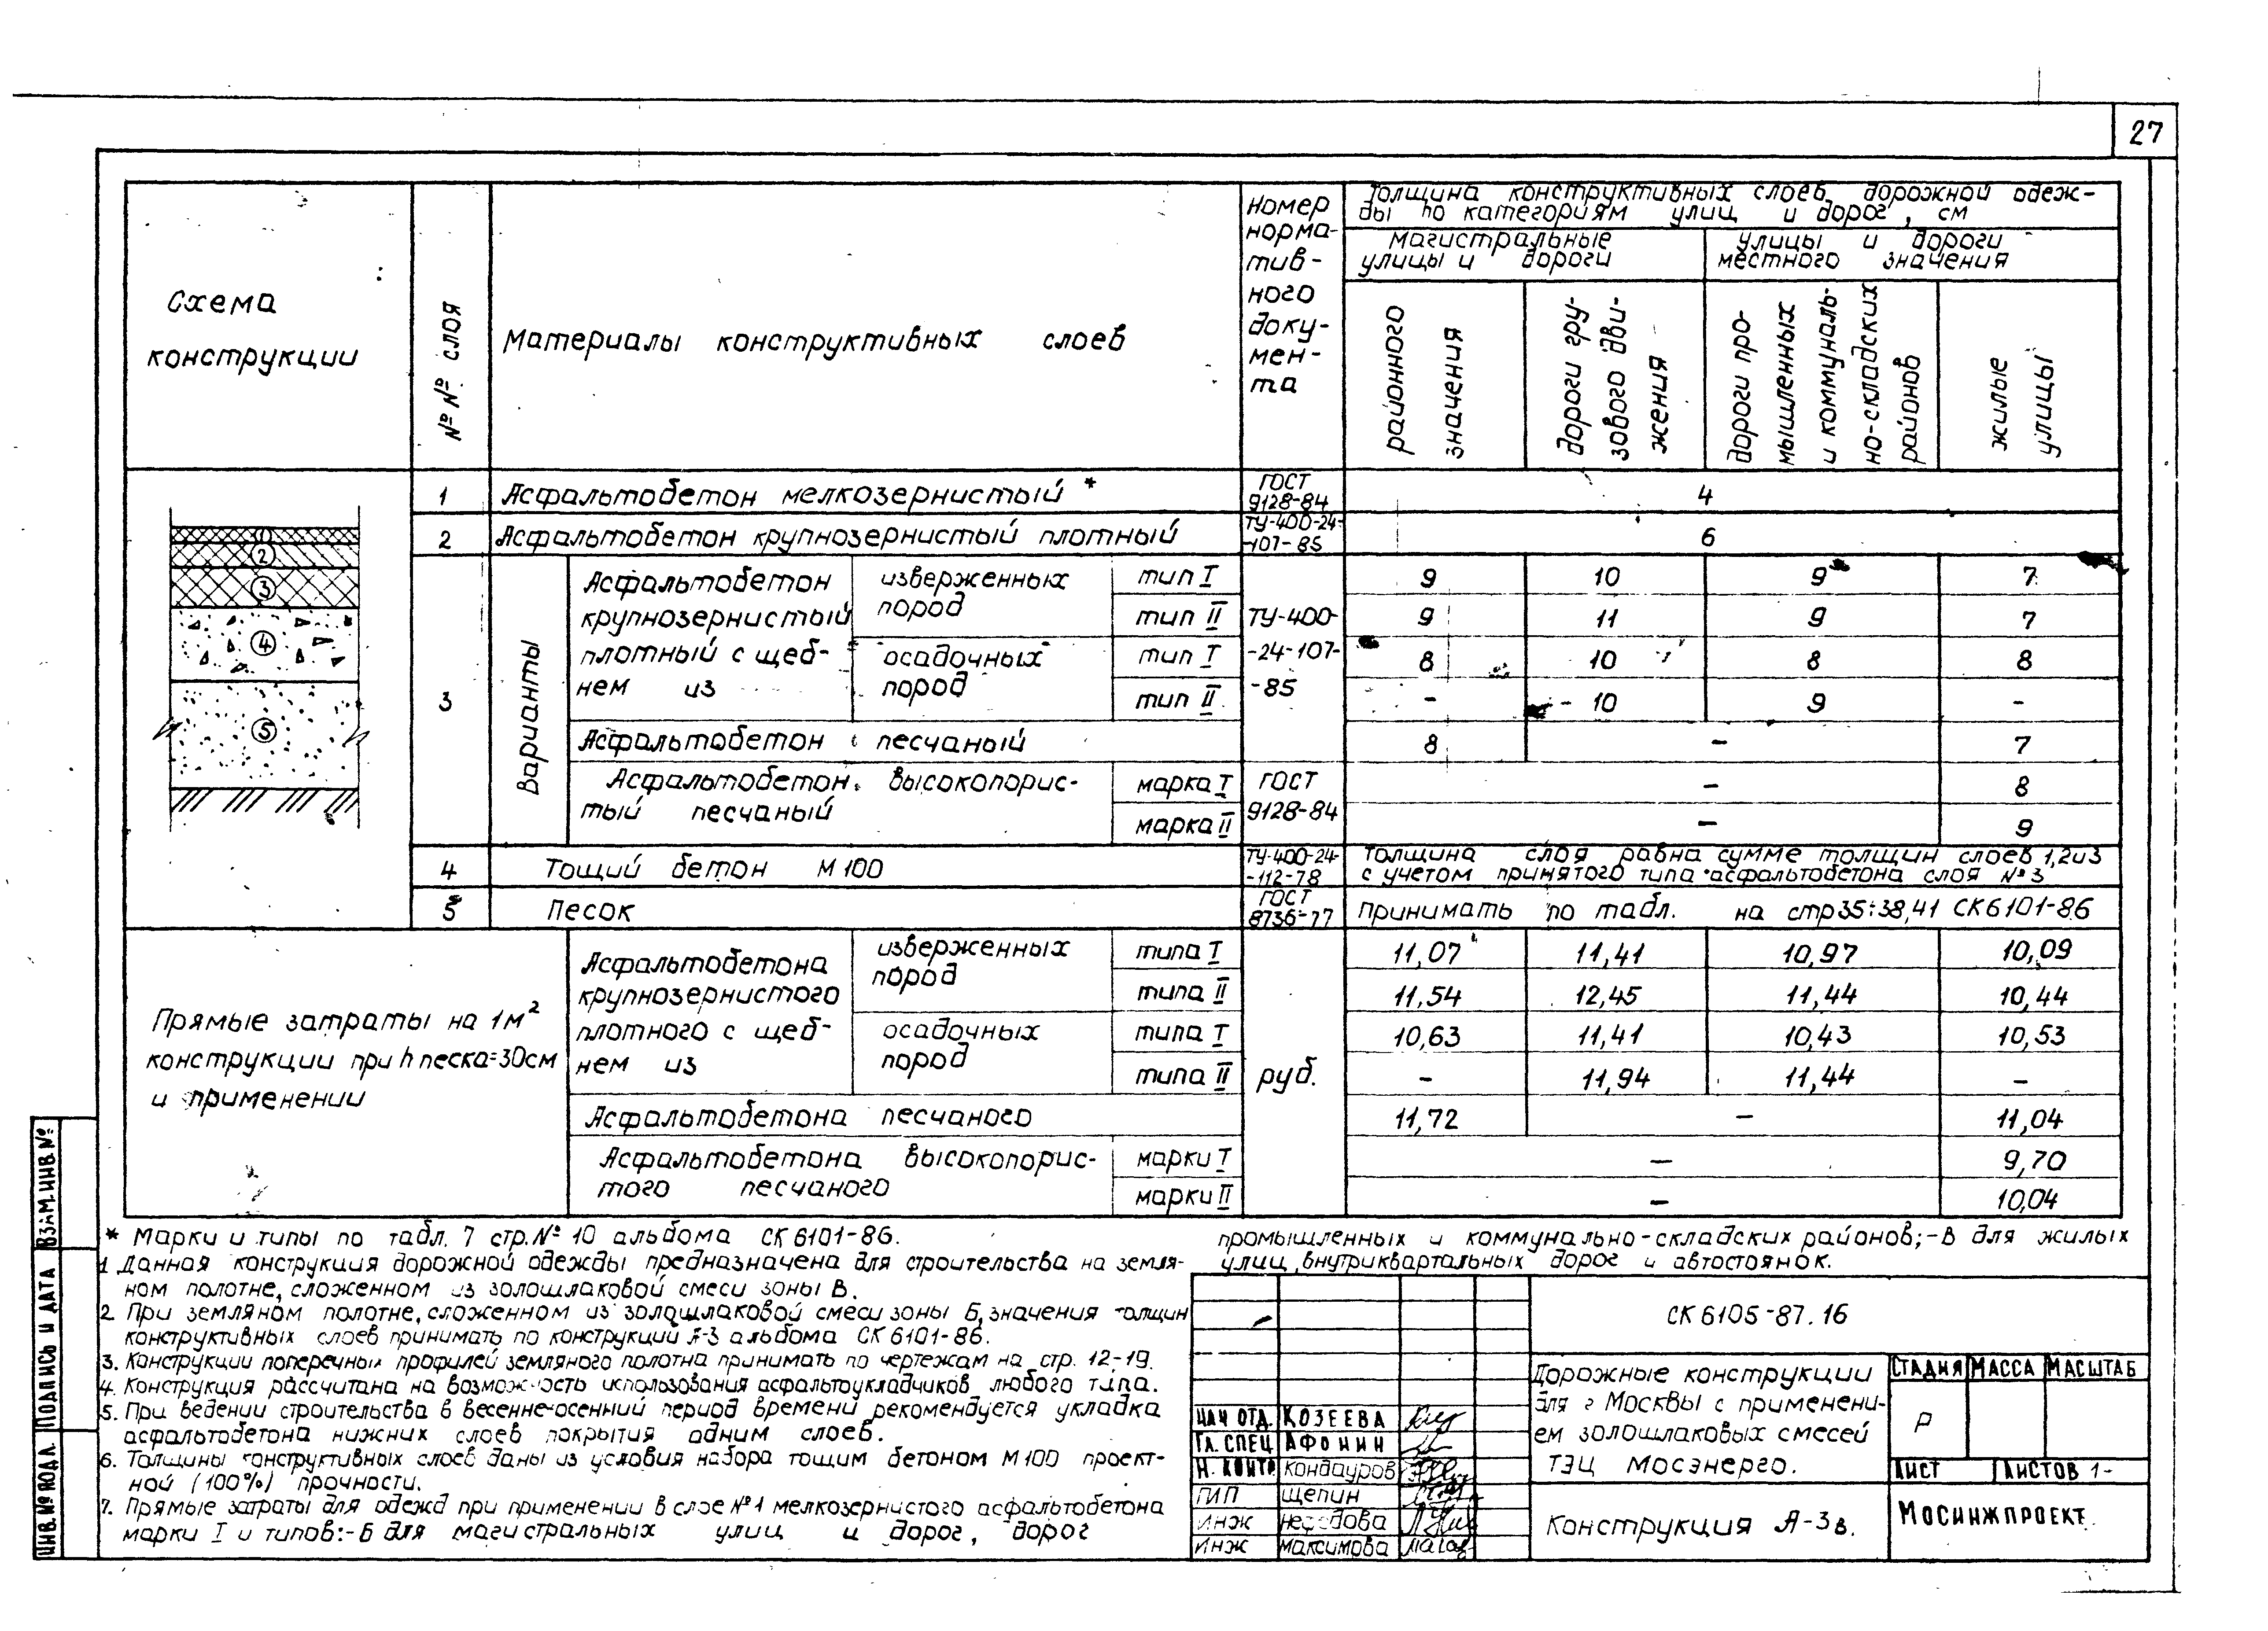 27
Схема
конструкции
№№ слоя
Материалы конструктивных слоев
Номер
норма-
тив-
ного
доку-
мен-
та
Толщина конструктивных слоев дорожной одеж-
ды по категориям улиц и дорог, см
магистральные
улицы и дороги
улицы и дороги
местного значения
районного
значения
дороги гру-
зового дви-
жения
дороги про-
мышленных
и коммуналь-
но-складских
районов
жилые
улицы
1 Асфальтобетон мелкозернистый * ГОСТ 9128-84 4
2 Асфальтобетон крупнозернистый плотный ТУ-400-24-107-85 6
3 Варианты
Асфальтобетон
крупнозернистый
плотный с щеб-
нем из
изверженных
пород
осадочных
пород
ТУ-400-
-24-107-
-85
тип I 9 10 9 7
тип II 9 11 9 7
тип I 8 10 8 8
тип II - 10 9 -
Асфальтобетон песчаный 8 - 7
Асфальтобетон высокопорис-
тый песчаный
ГОСТ
9128-84
марка I - 8
марка II - 9
4 Тощий бетон М100 ТУ-400-24-
-112-78
Толщина слоя равна сумме толщин слоев 1,2и3
с учетом принятого типа асфальтобетона слоя №3
5 Песок ГОСТ
8736-77
принимать по табл. на стр35÷38,41 СК6101-86
Прямые затраты на 1м²
конструкции при h песка=30см
и применении
Асфальтобетона
крупнозернистого
плотного с щеб-
нем из
изверженных
пород
осадочных
пород
руб.
типа I 11,07 11,41 10,97 10,09
типа II 11,54 12,45 11,44 10,44
типа I 10,63 11,41 10,43 10,53
типа II - 11,94 11,44 -
Асфальтобетона песчаного 11,72 - 11,04
Асфальтобетона высокопорис-
того песчаного
марки I - 9,70
марки II - 10,04
* Марки и типы по табл. 7 стр.№ 10 альбома СК 6101-86.
1 Данная конструкция дорожной одежды предназначена для строительства на земля-
ном полотне, сложенном из золошлаковой смеси зоны В.
2. При земляном полотне, сложенном из золошлаковой смеси зоны Б, значения толщин
конструктивных слоев принимать по конструкции А-3 альбома СК 6101-86.
3. Конструкции поперечных профилей земляного полотна принимать по чертежам на стр. 12-19.
4. Конструкция рассчитана на возможность использования асфальтоукладчиков любого типа.
5. При ведении строительства в весенне-осенний период времени рекомендуется укладка
асфальтобетона нижних слоев покрытия одним слоем.
6. Толщины конструктивных слоев даны из условия набора тощим бетоном М100 проект-
ной (100%) прочности.
7. Прямые затраты для одежд при применении в слое №1 мелкозернистого асфальтобетона
марки I и типов:-Б для магистральных улиц и дорог, дорог
промышленных и коммунально-складских районов;-В для жилых
улиц, внутриквартальных дорог и автостоянок.
СК 6105-87.16
Дорожные конструкции
для г Москвы с применени-
ем золошлаковых смесей
ТЭЦ Мосэнерго.
СТАДИЯ МАССА МАСШТАБ
Р
ЛИСТ ЛИСТОВ 1-
Конструкция А-3в.
МОСИНЖПРОЕКТ.
НАЧ ОТД. КОЗЕЕВА
ГЛ. СПЕЦ АФОНИН
Н. КОНТР. Кондауров
ГИП Щепин
ИНЖ
ИНЖ Максимова
ВЗАМ.ИНВ №
ПОДПИСЬ И ДАТА
ИНВ.№ ПОДЛ.
1
2
3
4
5